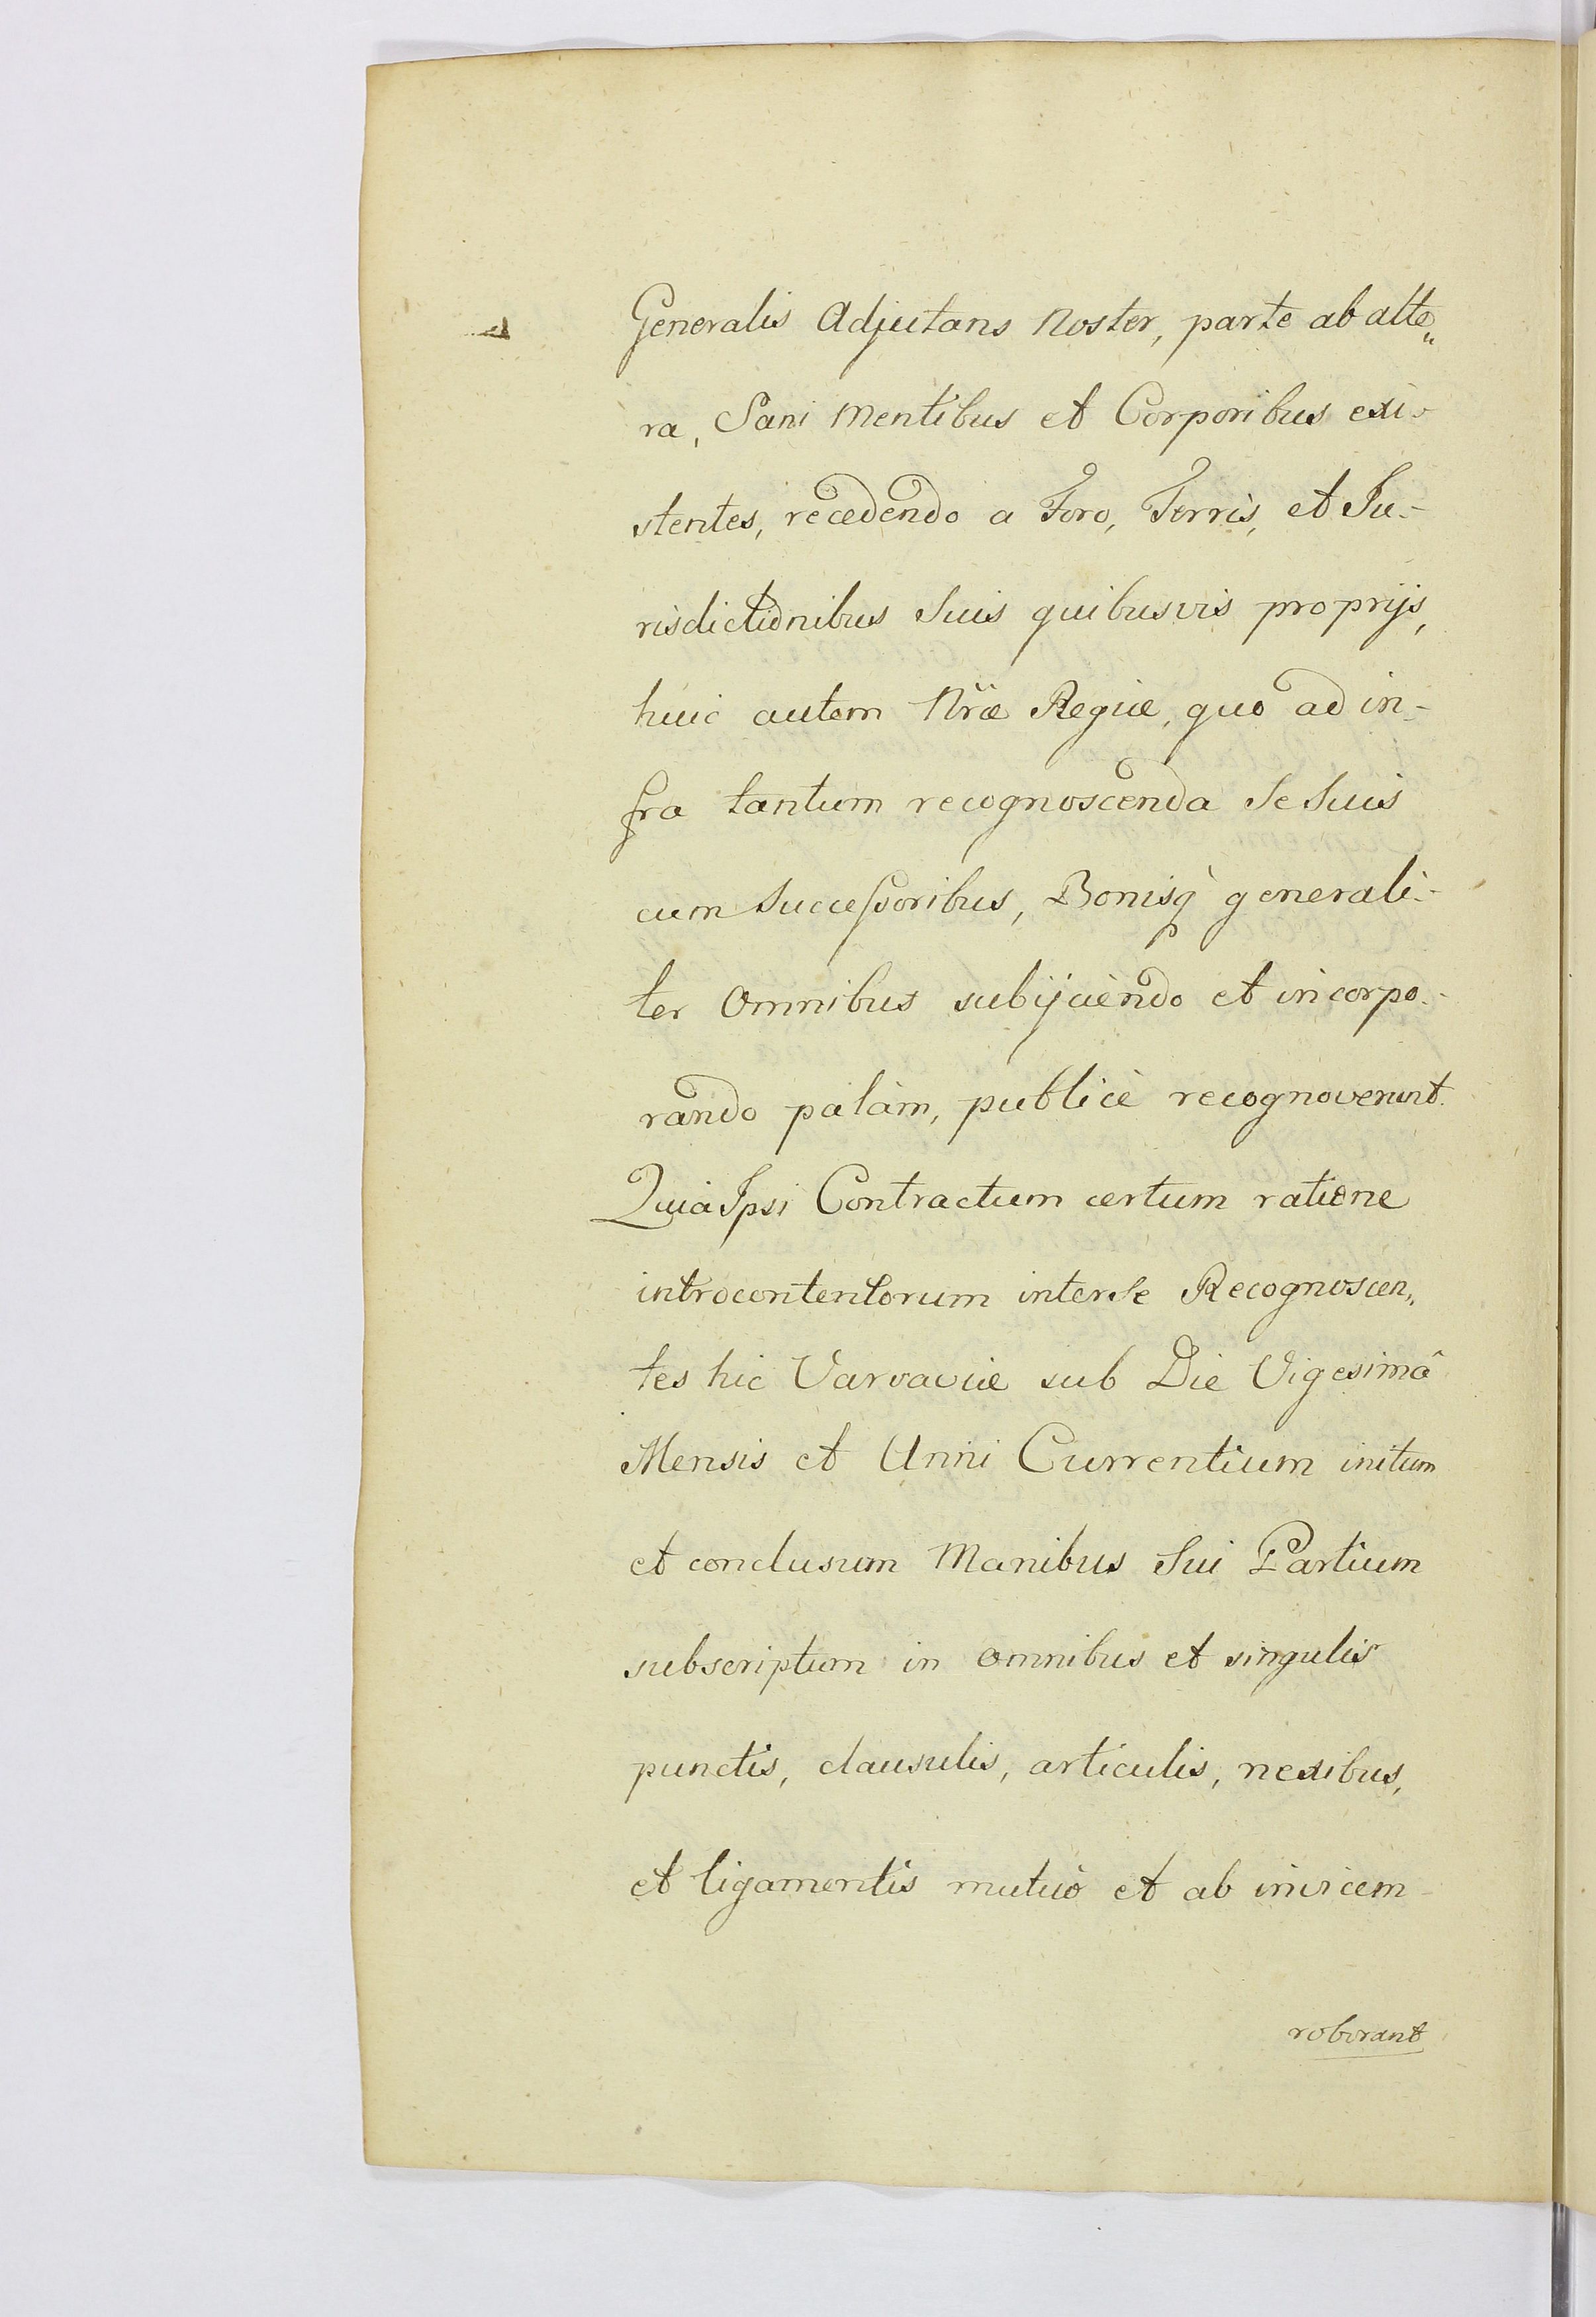 Generalis Adjutans Noster, parte ab alte„
ra, Sani Mentibus et Corporibus exi-
stentes, recedendo a Foro, Terris, et Ju-
risdictionibus Suis quibusvis proprijs,
huic autem Nr̃æ Regiæ, quo ad in-
fra tantum recognoscenda Se Suis
cum Successoribus, Bonisq̀ generali-
ter Omnibus subijciendo et incorpo-
rando palàm, publicè recognoverunt.
Quia Ipsi Contractum certum ratione
introcontentorum inter Se Recognoscen„
tes hic Varsaviæ sub Die Vigesimâ
Mensis et Anni Currentium initum
et conclusum Manibus Sui Partium
subscriptum in omnibus et singulis
punctis, clausulis, articulis, nexibus,
et ligamentis mutuò et ab invicem
roborant